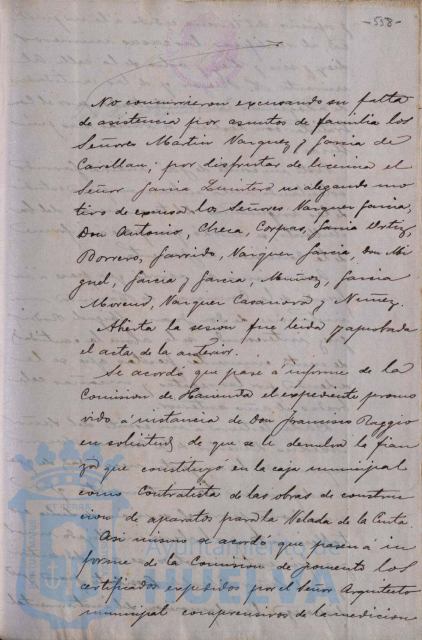 -558-
No concurrieron excusando su falta
de asistencia por asuntos de familia los
Señores Martin Vazquez y Garcia de
Castellan; por disfrutar de licencia el
Señor Garcia Quintero no alegando mo
tivo de excusa los Señores Vazquez Garcia,
Don Antonio, Checa, Corpas, Garcia Ortiz,
Borrero, Garrido, Vazquez Garcia, Don Mi
guel, Garcia y Garcia, Muñoz, Garcia
Moreno, Vazquez Casanova y Nuñez.
Abierta la sesion fué leida y aprobada
el acta de la anterior.
Se acordó que pase á informe de la
Comision de Hacienda el expediente promo
vido á instancia de Don Francisco Poggio
en solicitud de que se le devuelva la fian
za que constituyó en la caja municipal
como Contratista de las obras de construc
cion de aparatos para la Velada de la Cinta.
Asi mismo se acordó que pasen á in
forme de la Comision de fomento los
certificados expedidos por el Señor Arquitecto
municipal comprensivos de la medicion
Ayuntamiento de
HUELVA